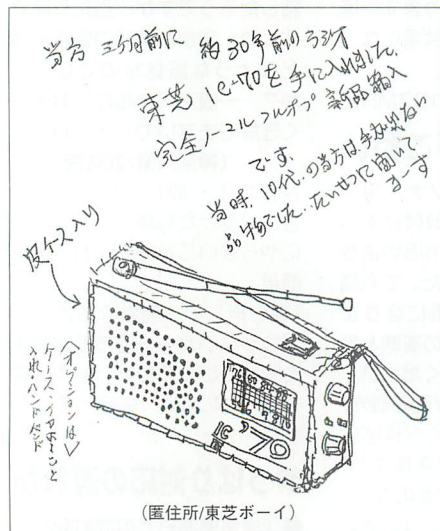 当方 三ヶ月前に 約30年前のラジオ
東芝 IC-70を手に入れました。
完全ノーマルフルオプ 新品購入
です。
当時、10代の当方は手が出ない
品物でした。たいせつに聞いて
まーす
皮ケース入り
〈オプションは〉
ケース、イヤホーンと
入れ・ハンドバンド
IC 70
(匿住所/東芝ボーイ)